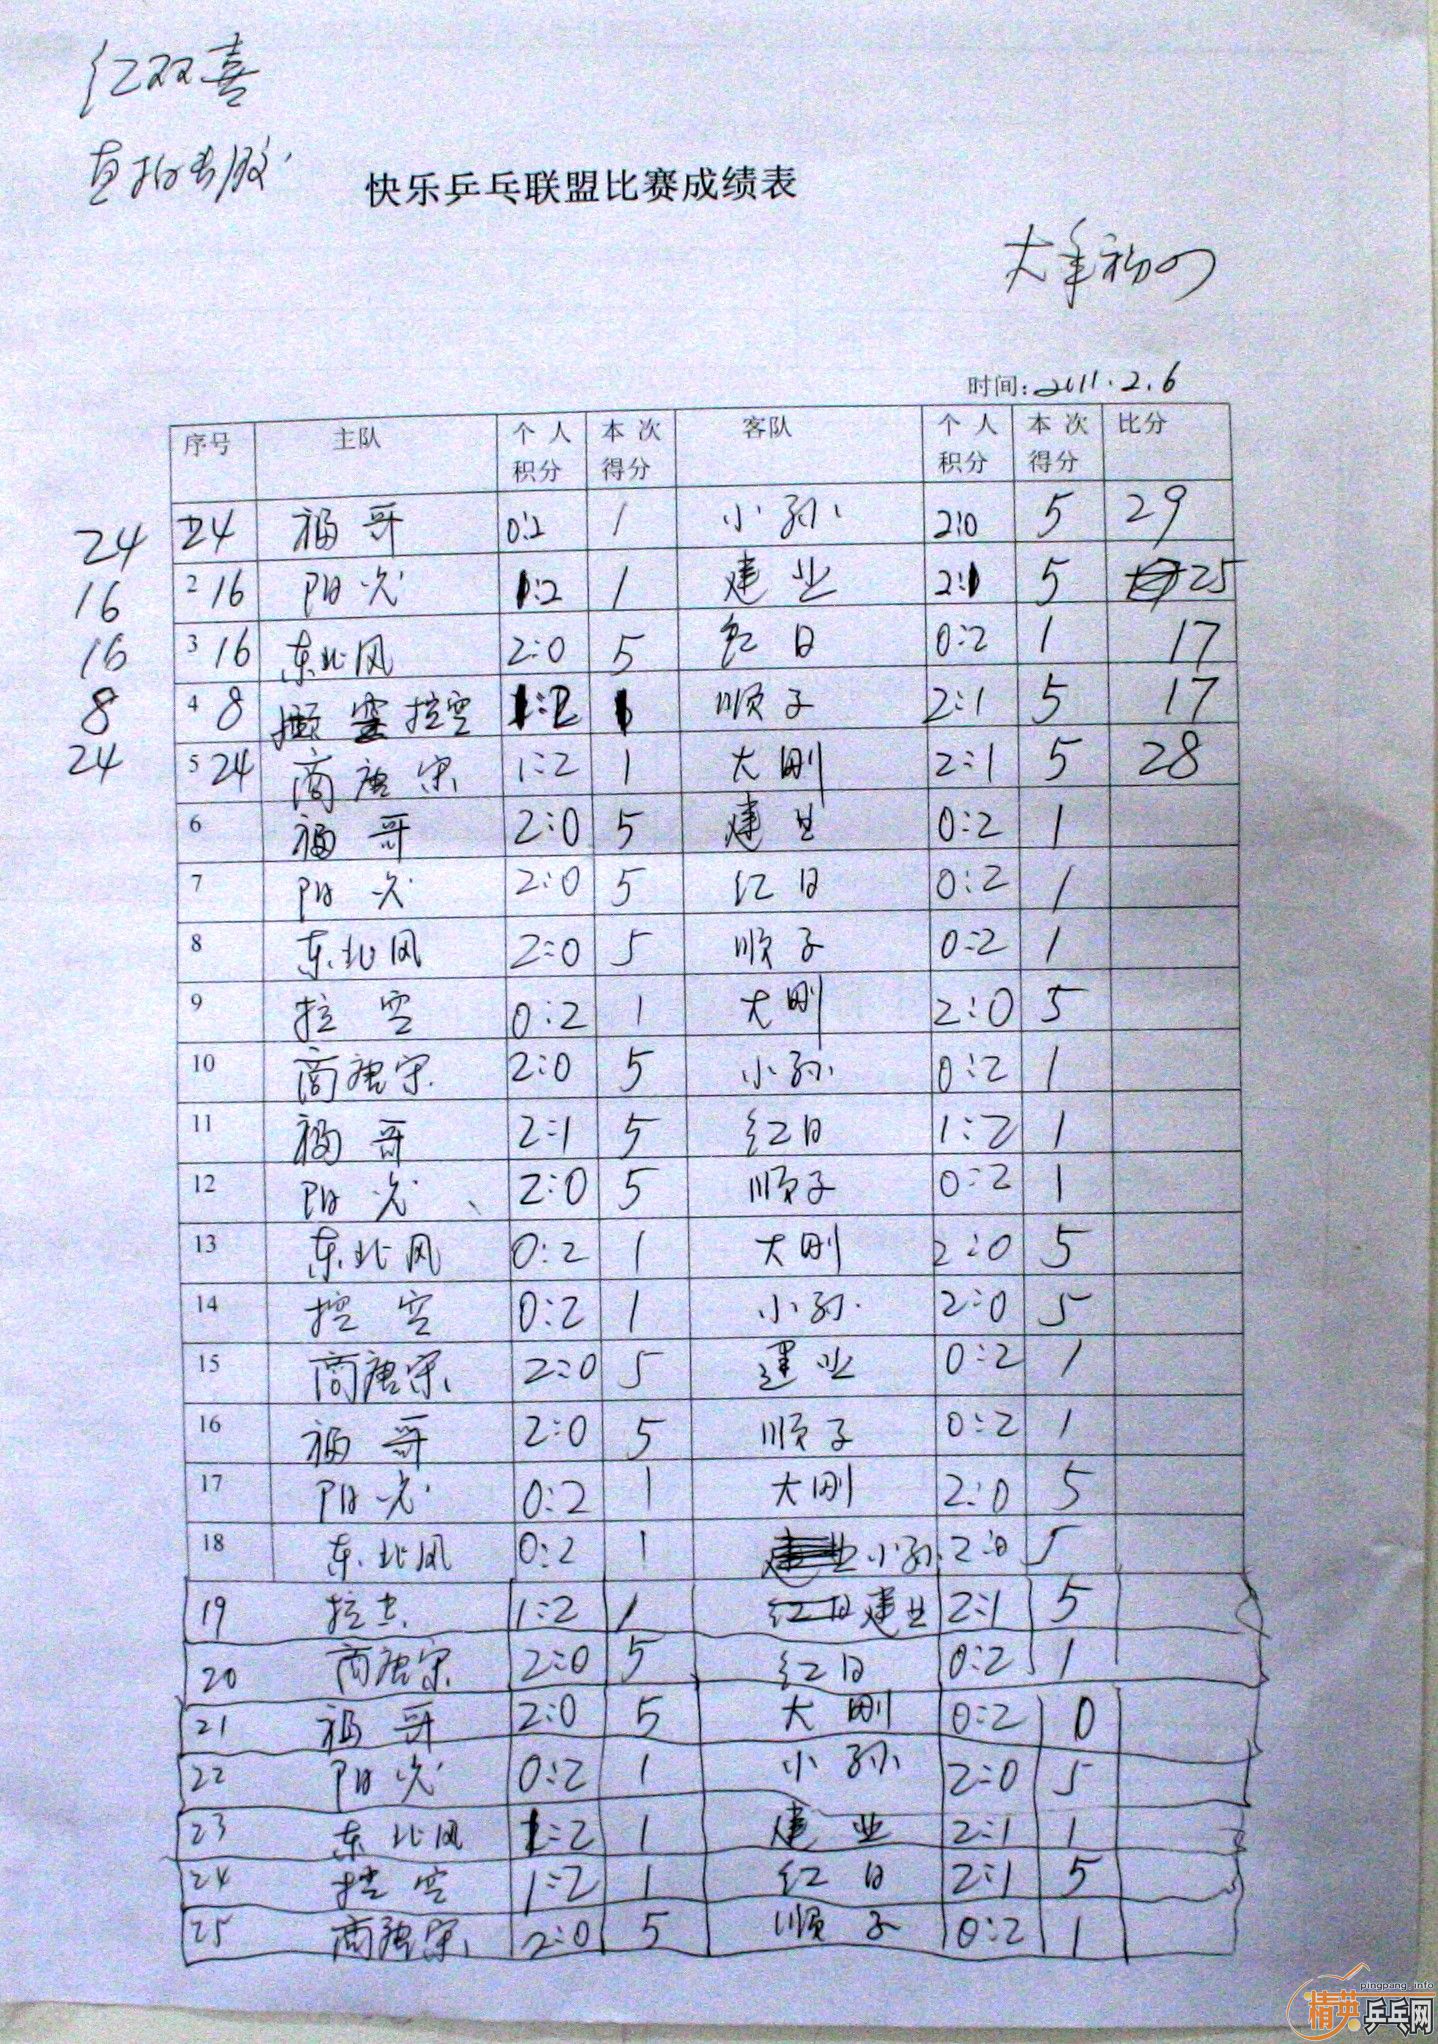 红双喜
直拍专胶
快乐乒乓联盟比赛成绩表
大年初四
时间:2011.2.6
序号 主队 个人积分 本次得分 客队 个人积分 本次得分 比分
24 24 福哥 0:2 1 小孙 2:0 5 29
16 2 16 阳光 1:2 1 建业 2:1 5 25
16 3 16 东北风 2:0 5 红日 0:2 1 17
8 4 8 控空 1:2 1 顺子 2:1 5 17
24 5 24 商唐宋 1:2 1 大刚 2:1 5 28
6 福哥 2:0 5 建业 0:2 1
7 阳光 2:0 5 红日 0:2 1
8 东北风 2:0 5 顺子 0:2 1
9 控空 0:2 1 大刚 2:0 5
10 商唐宋 2:0 5 小孙 0:2 1
11 福哥 2:1 5 红日 1:2 1
12 阳光 2:0 5 顺子 0:2 1
13 东北风 0:2 1 大刚 2:0 5
14 控空 0:2 1 小孙 2:0 5
15 商唐宋 2:0 5 建业 0:2 1
16 福哥 2:0 5 顺子 0:2 1
17 阳光 0:2 1 大刚 2:0 5
18 东北风 0:2 1 建业 小孙 2:0 5
19 控空 1:2 1 红日 建业 2:1 5
20 商唐宋 2:0 5 红日 0:2 1
21 福哥 2:0 5 大刚 0:2 0
22 阳光 0:2 1 小孙 2:0 5
23 东北风 1:2 1 建业 2:1 1
24 控空 1:2 1 红日 2:1 5
25 商唐宋 2:0 5 顺子 0:2 1
pingpang.info
精英乒乓网